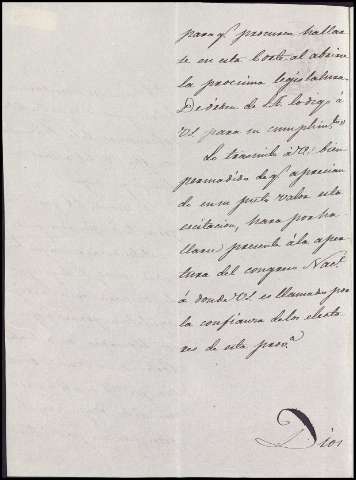 para q.e procuren hallar
se en esta Corte al abrirse
la procsima legislatura.
De órden de S.A. lo digo á
V.S. para su cumplim.to
Lo trasmito á V.S. bien
persuadido de q.e aprecian
do en su justo valor esta
escitacion, hara por ha
llarse presente á la aper
tura del congreso Nac.l
á donde V.S. es llamado por
la confianza de los electo
res de esta prov.a
Dios